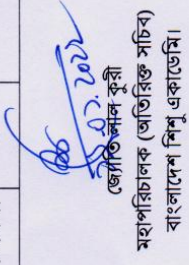 ২৫.০১.২০২২
জ্যোতি লাল কুরী
মহাপরিচালক (অতিরিক্ত সচিব)
বাংলাদেশ শিশু একাডেমি।